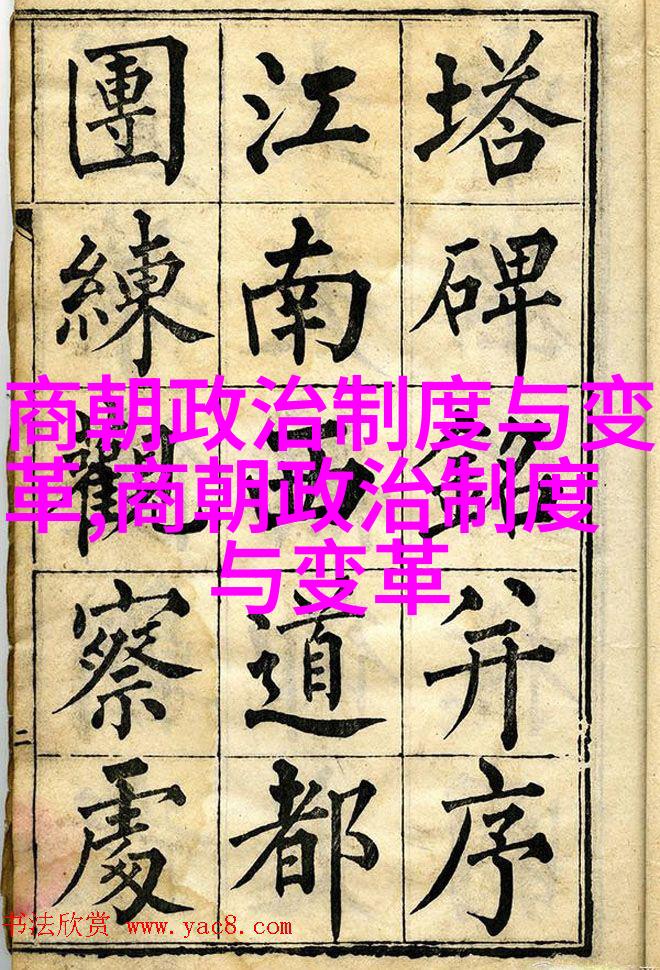 塔碑銘并序
江南西道都
團練觀察處
二
商朝政治制度与变
革,商朝政治制度
与变革
书法欣赏 www.yac8.com